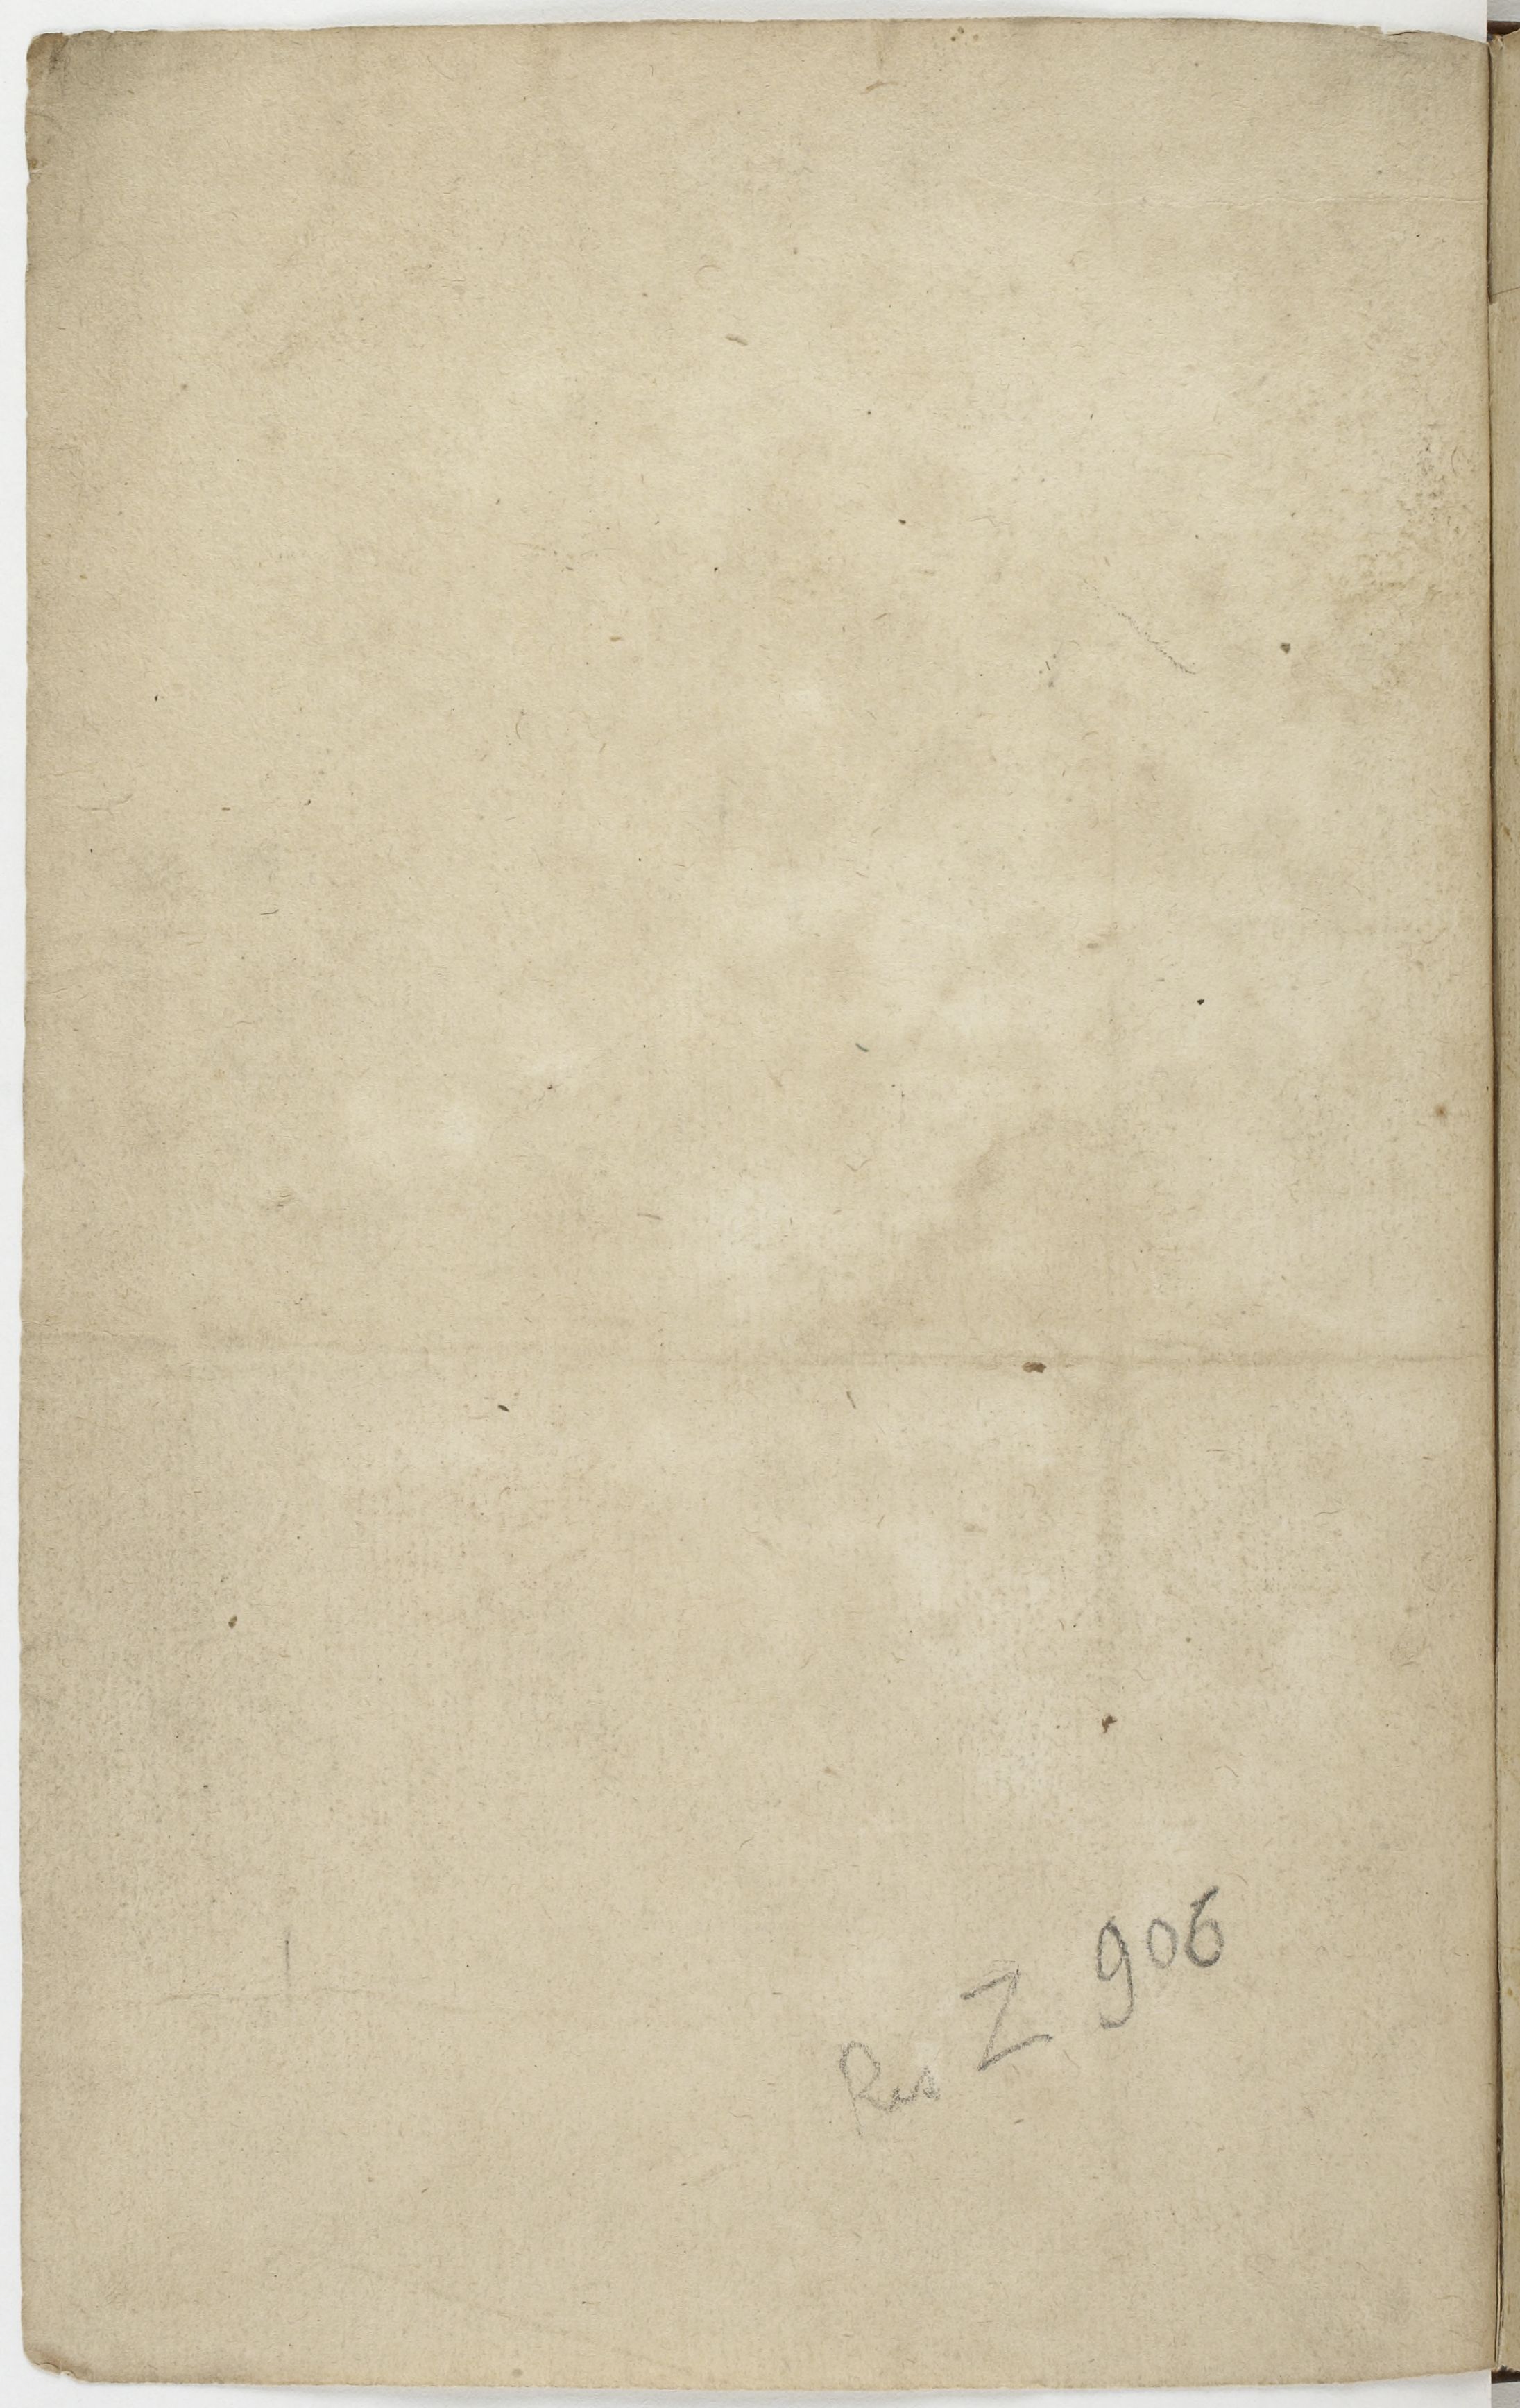 Res Z 906